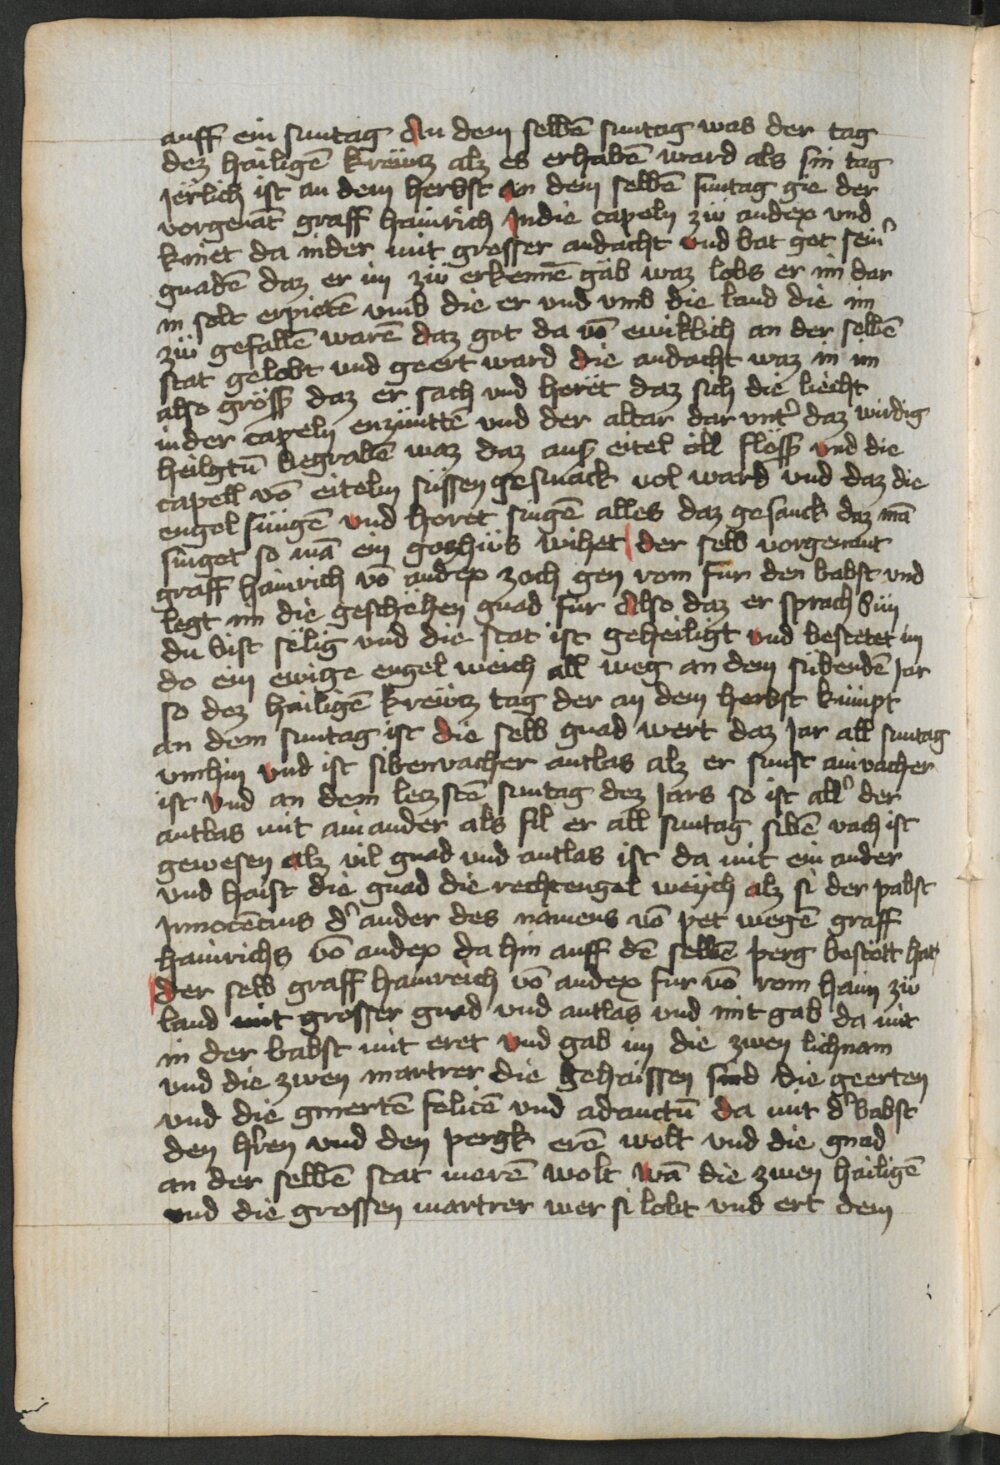 auff ein suntag An dem selbē suntag was der tag
dez hailigē krewcz alz es erhabē ward als sin tag
Jerlich ist an dem herbst An dem selbē suntag gie der
vorgenāt graff hainrich Jn die capeln zů andex vnd
kniet da nider mit grosser andacht vnd bat got sein̾
gnadē daz er im zů erkennē gäb waz lobs er im dar
in solt erpietē vmb die er vnd vmb die land die im
zů gefallē warē daz got da vō ewiklich an der selbē
stat gelobt vnd geert ward die andacht waz in im
also gröss daz er sach vnd horet daz sich die liecht
in der capeln enzuntē vnd der altar dar vnt̾ daz wirdig
heilgtū begrabē waz daz auß eitel öll flöss vnd die
capell vō eitelm süssen gesmack vol ward vnd daz die
engel sungē vnd horet singē alles daz gesanck daz mā
singet so mā ein goczhüs wihet der selb vorgenant
graff hainrich vō andex zoch gen rom fur den babst vnd
legt im die geschehen gnad fur Also daz er sprach sun
du bist sëlig vnd die stat ist geheiligt vnd bestetet im
do ein ewige engel weich all weg an dem sübendē Jar
so dez hailigē krewcz tag der an dem herbst kumpt
an dem suntag ist die selb gnad wert daz Jar all suntag
vmhin vnd ist sibenvacher antlas alz er sunst ainvacher
ist vnd an dem leczstē suntag dez Jars so ist all̾ der
antlas mit ainander als fil er all suntag sibē vach ist
gewesen alz vil gnad vnd antlas ist da mit ein ander
vnd haist die gnad die recht engel weych alz si der pabst
Jnnocēcius d̾ ander des namens vō pet wegē graff
hainrichs vō andex da hin auff dē selbē perg bestätt hat
der selb graff hainreich vō andex fur vō rom haim zů
land mit grosser gnad vnd antlas vnd mit gab da mit
in der babst mit eret vnd gab im die zwen lichnam
vnd die zwen martrer die gehaissen sind die geerten
vnd die gmertē felicē vnd adauctū da mit d̾ babst
den h̾ren vnd den pergk erē wolt vnd die gnad
an der selbē stat merē wolt wā die zwen hailigē
vnd die grossen martrer wer si lobt vnd ert dem